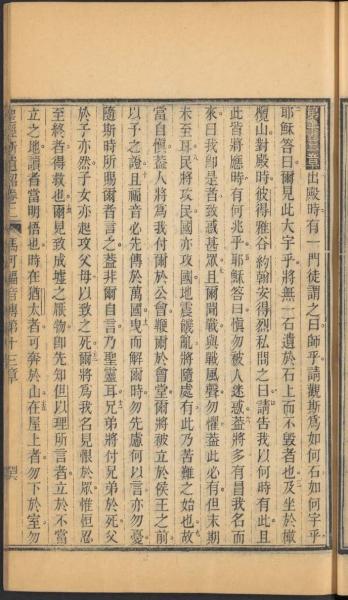 出殿時有一門徒謂之曰師乎請觀斯爲如何石如何宇乎
耶穌答曰爾見此大宇乎將無一石遺於石上而不毀者也及坐於橄
欖山對殿時彼得雅谷約翰安得烈私問之曰請告我以何時有此且
此皆將應時有何兆乎耶穌答曰愼勿被人迷惑蓋將多有冒我名而
來曰我卽是者致惑甚眾且爾聞戰與戰風聲勿懼蓋此必有但末期
未至耳民將攻民國亦攻國地震饑亂將隨處有此乃苦難之始也故
當自愼蓋人將爲我付爾於公會鞭爾於會堂爾將被立於侯王之前
以予之證且福音必先傳於萬國曳而解爾時勿先慮何以言亦勿憂
隨斯時所賜爾者言之蓋非爾自言乃聖靈耳兄弟將付兄弟於死父
於子亦然子女亦起攻父母以致之死爾將爲我名見恨於眾惟恒忍
至終者得救也爾見致成墟之厭物卽先知但以理所言者立於不當
立之地讀者當明悟也時在猶太者可奔於山在屋上者勿下於室勿
馬可福音傳第十三章